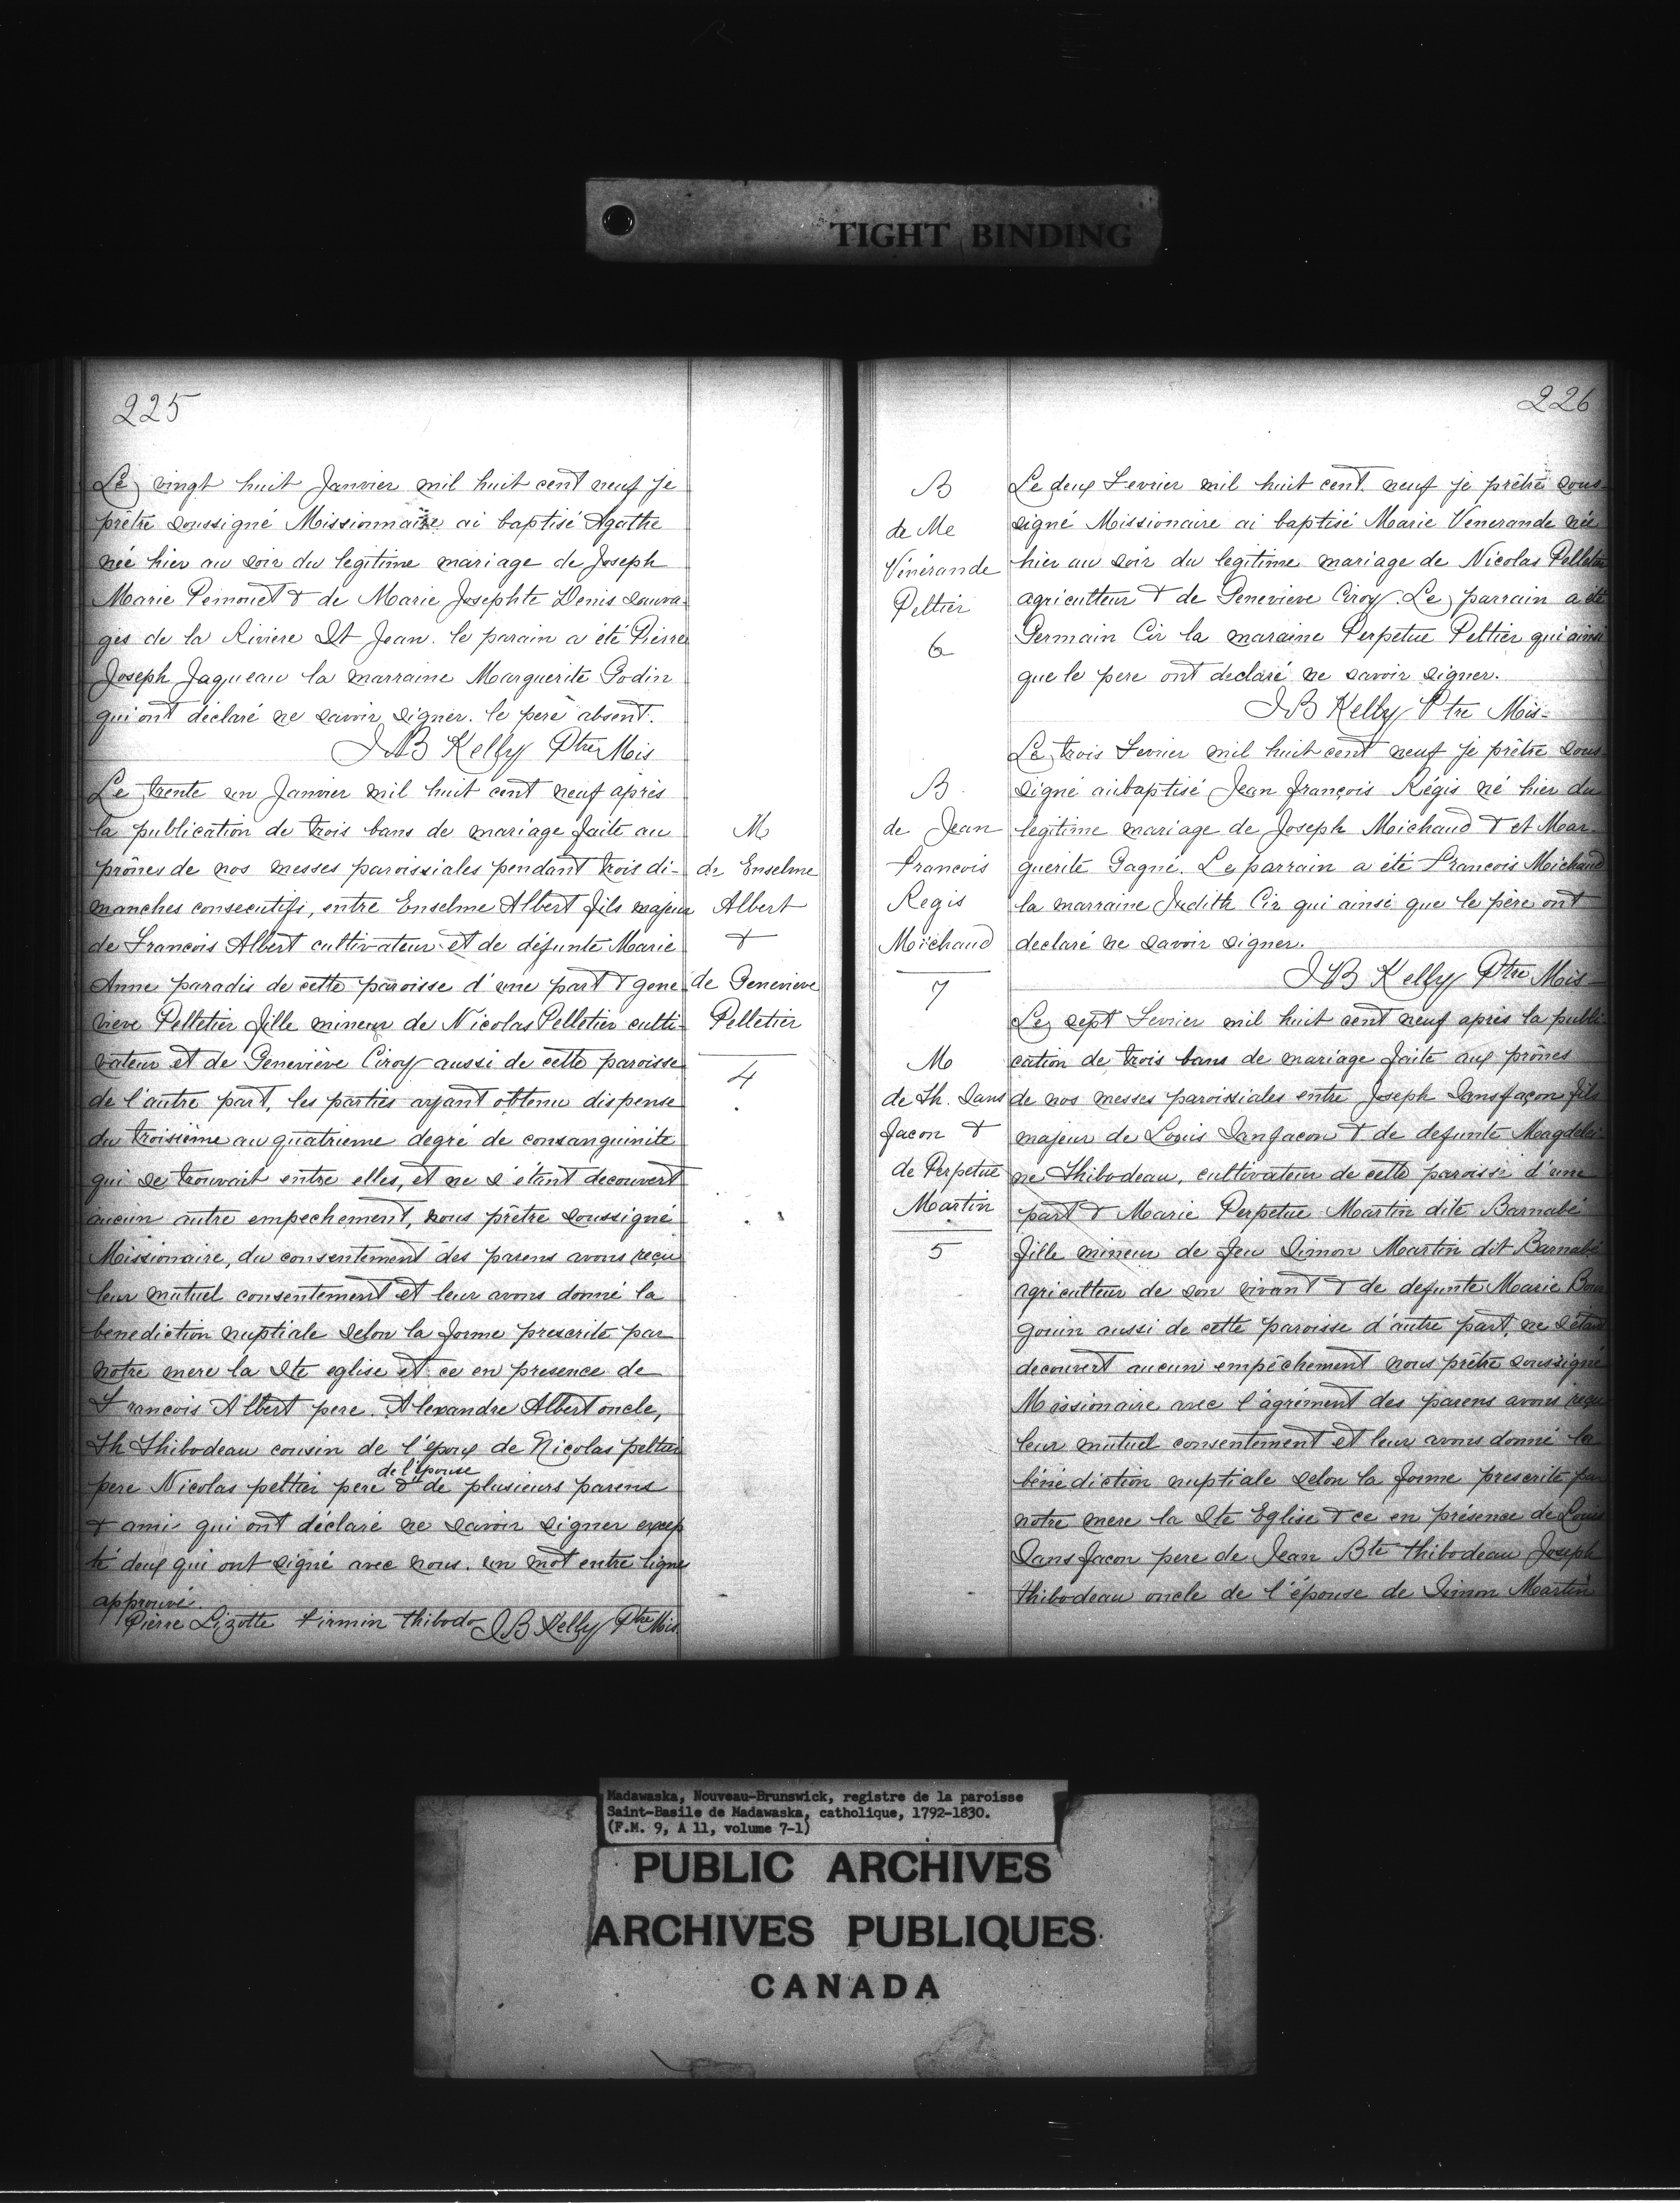 TIGHT BINDING
225
Le vingt huit Janvier mil huit cent neuf je
prêtre soussigné Missionnaire ai baptisé Agathe
née hier au soir du legitime mariage de Joseph
Marie Pemouet & de Marie Josephte Denis sauva-
ges de la Riviere St Jean. le parain a été Pierre
Joseph Jaqueau la marraine Marguerite Godin
qui ont déclaré ne savoir signer. le pere absent.
J B Kelly Ptre Mis
Le trente un Janvier mil huit cent neuf après
la publication de trois bans de mariage faite au
prônes de nos messes paroissiales pendant trois di-
manches consecutifs, entre Enselme Albert fils majeur
de Francois Albert cultivateur et de défunte Marie
Anne paradis de cette paroisse d'une part & gene
vieve Pelletier fille mineur de Nicolas Pelletier culti-
vateur et de Geneviève Ciroy aussi de cette paroisse
de l'autre part, les parties ayant obtenu dispense
du troisième au quatrieme degré de consanguinite
qui se trouvait entre elles, et ne s'étant decouvert
aucun autre empechement, nous prêtre soussigné
Missionaire, du consentement des parens avons reçu
leur mutuel consentement et leur avons donné la
benediction nuptiale selon la forme prescrite par
notre mere la Ste eglise et ce en presence de
Francois Albert pere. Alexandre Albert oncle,
Th Thibodeau cousin de l'époux de Nicolas peltier
de l'épouse
pere Nicolas peltier pere & de plusieurs parens
& ami qui ont déclaré ne savoir signer excep
té deux qui ont signé avec nous. un mot entre ligne
approuvé.
Pierre Lizotte Firmin thibodo J B Kelly Ptre Mis.
M
de Enselme
Albert
&
de Genevieve
Pelletier
4
226
B
de Me
Vénérande
Peltier
6
Le deux Fevrier mil huit cent. neuf je prêtre sous-
signé Missionaire ai baptisé Marie Venerande née
hier au soir du legitime mariage de Nicolas Pelletier
agriculteur & de Genevieve Ciroy. Le parrain a été
Germain Cir la maraine Perpetue Peltier qui ainsi
que le pere ont declaré ne savoir signer.
J B Kelly Ptre Mis-
B
de Jean
francois
Regis
Michaud
7
Le trois Fevrier mil huit cent neuf je prêtre sous-
signé ai baptisé Jean françois Régis né hier du
legitime mariage de Joseph Michaud & et Mar-
guerite Gagné. Le parrain a été Francois Michaud
la marraine Judith Cir qui ainsi que le père ont
declaré ne savoir signer.
J B Kelly Ptre Mis-
M
de Th. Sans
facon &
de Perpetue
Martin
5
Le sept Fevrier mil huit cent neuf après la publi-
cation de trois bans de mariage faite aux prônes
de nos messes paroissiales entre Joseph Sansfaçon fils
majeur de Louis Sanfacon & de defunte Magdelei-
ne Thibodeau, cultivateur de cette paroisse d'une
part & Marie Perpetue Martin dite Barnabé
fille mineur de feu Simon Martin dit Barnabé
agriculteur de son vivant & de defunte Marie Bour
gouin aussi de cette paroisse d'autre part, ne s'étant
decouvert aucun empêchement nous prêtre soussigné
Missionaire avec l'agrément des parens avons reçu
leur mutuel consentement et leur avons donné la
bénédiction nuptiale selon la forme prescrite par
notre mere la Ste Eglise & ce en présence de Louis
Sansfacon pere de Jean Bte thibodeau Joseph
thibodeau oncle de l'épouse de Simon Martin
Madawaska, Nouveau-Brunswick, registre de la paroisse
Saint-Basile de Madawaska, catholique, 1792-1830.
(F.M. 9, A 11, volume 7-1)
PUBLIC ARCHIVES
ARCHIVES PUBLIQUES
CANADA